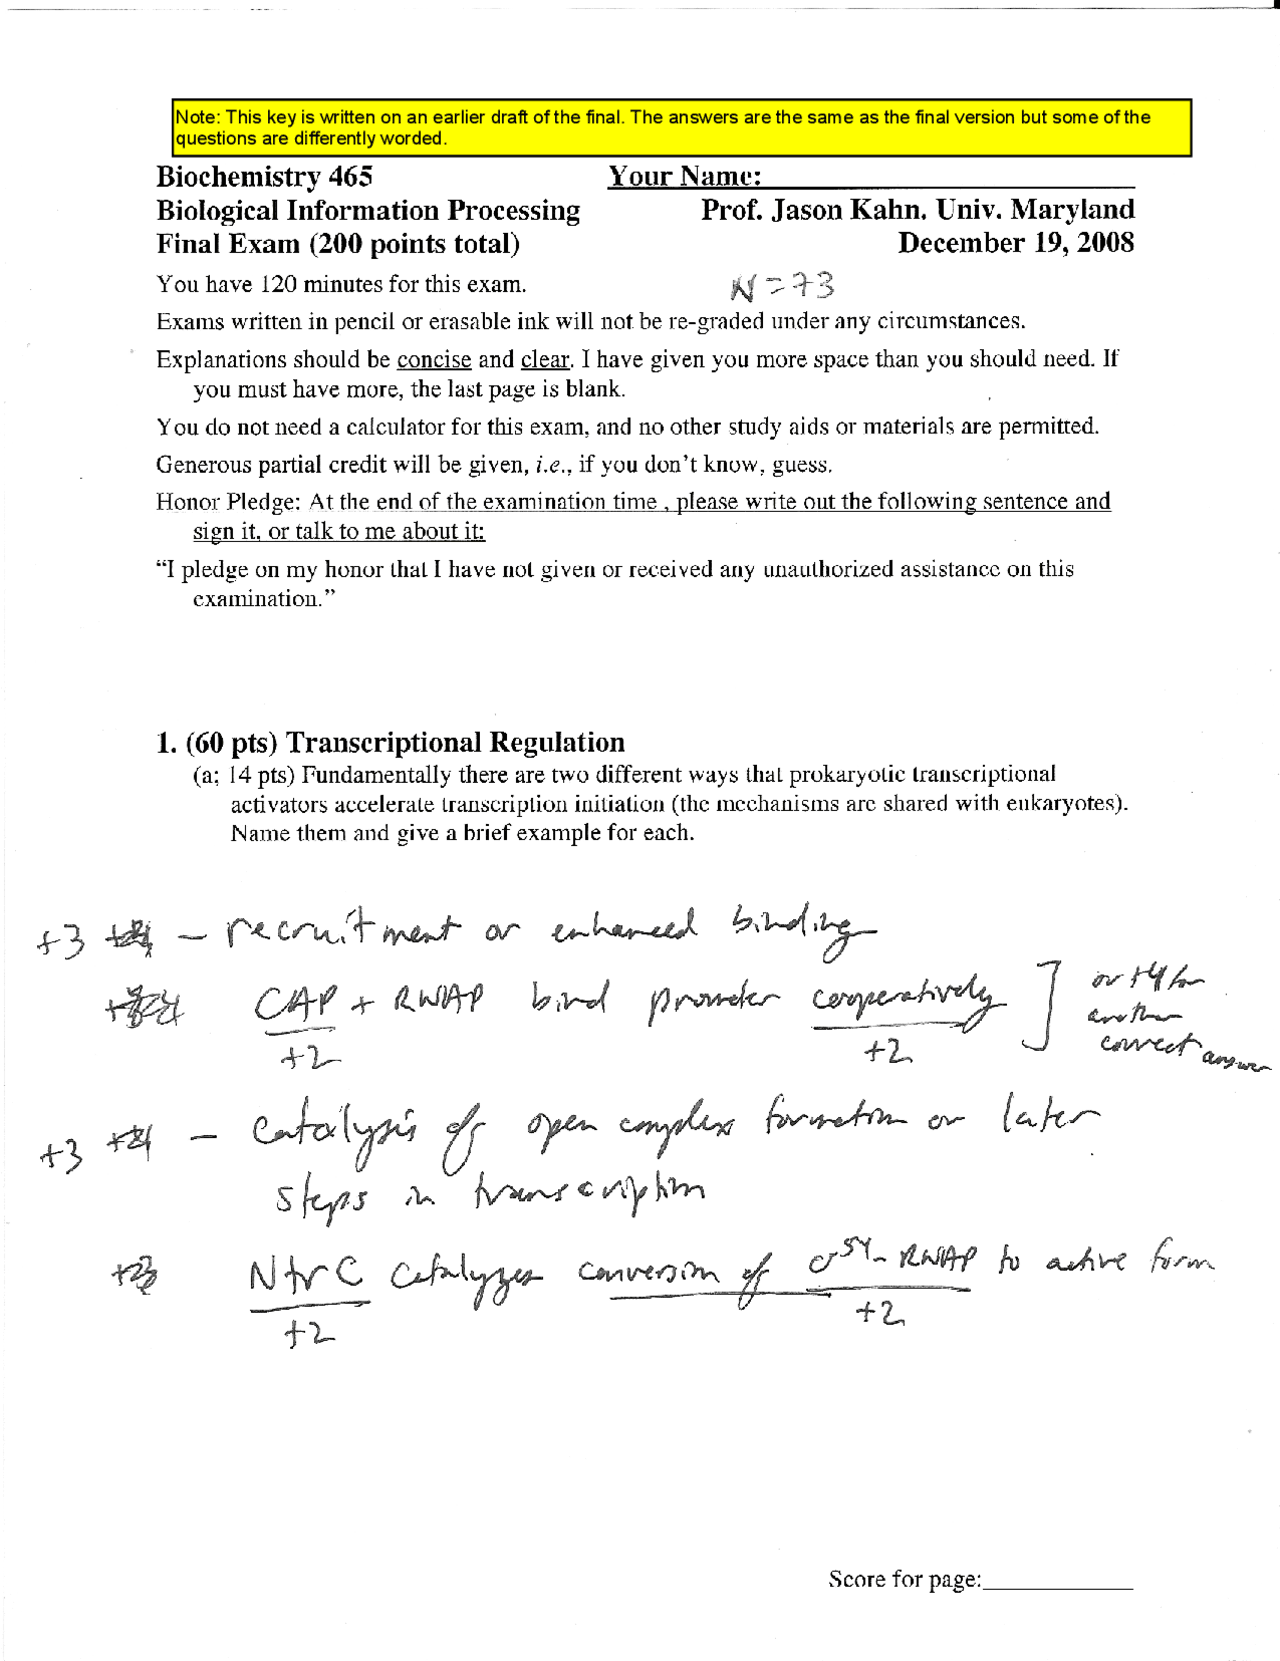 Note: This key is written on an earlier draft of the final. The answers are the same as the final version but some of the
questions are differently worded.
Biochemistry 465 Your Name:
Biological Information Processing Prof. Jason Kahn, Univ. Maryland
Final Exam (200 points total) December 19, 2008
You have 120 minutes for this exam. N=73
Exams written in pencil or erasable ink will not be re-graded under any circumstances.
Explanations should be concise and clear. I have given you more space than you should need. If
you must have more, the last page is blank.
You do not need a calculator for this exam, and no other study aids or materials are permitted.
Generous partial credit will be given, i.e., if you don't know, guess.
Honor Pledge: At the end of the examination time , please write out the following sentence and
sign it, or talk to me about it:
"I pledge on my honor that I have not given or received any unauthorized assistance on this
examination."
1. (60 pts) Transcriptional Regulation
(a; 14 pts) Fundamentally there are two different ways that prokaryotic transcriptional
activators accelerate transcription initiation (the mechanisms are shared with eukaryotes).
Name them and give a brief example for each.
+3 – recruitment or enhanced binding
CAP + RNAP bind promoter cooperatively ] or +4 for
another
correct answer
+2 +2
+3 – catalysis of open complex formation or later
steps in transcription
NtrC catalyzes conversion of σ54-RNAP to active form
+2 +2
Score for page: